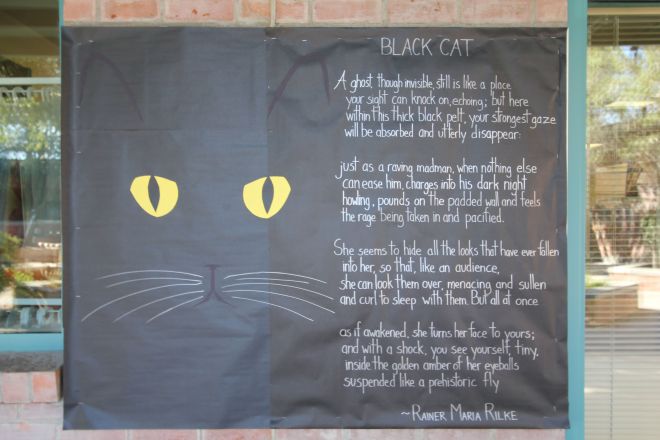 BLACK CAT
A ghost, though invisible, still is like a place
your sight can knock on, echoing; but here
within this thick black pelt, your strongest gaze
will be absorbed and utterly disappear:
just as a raving madman, when nothing else
can ease him, charges into his dark night
howling, pounds on the padded wall and feels
the rage being taken in and pacified.
She seems to hide all the looks that have ever fallen
into her, so that, like an audience,
she can look them over, menacing and sullen
and curl to sleep with them. But all at once
as if awakened, she turns her face to yours;
and with a shock, you see yourself, tiny,
inside the golden amber of her eyeballs
suspended like a prehistoric fly
~RAINER MARIA RILKE